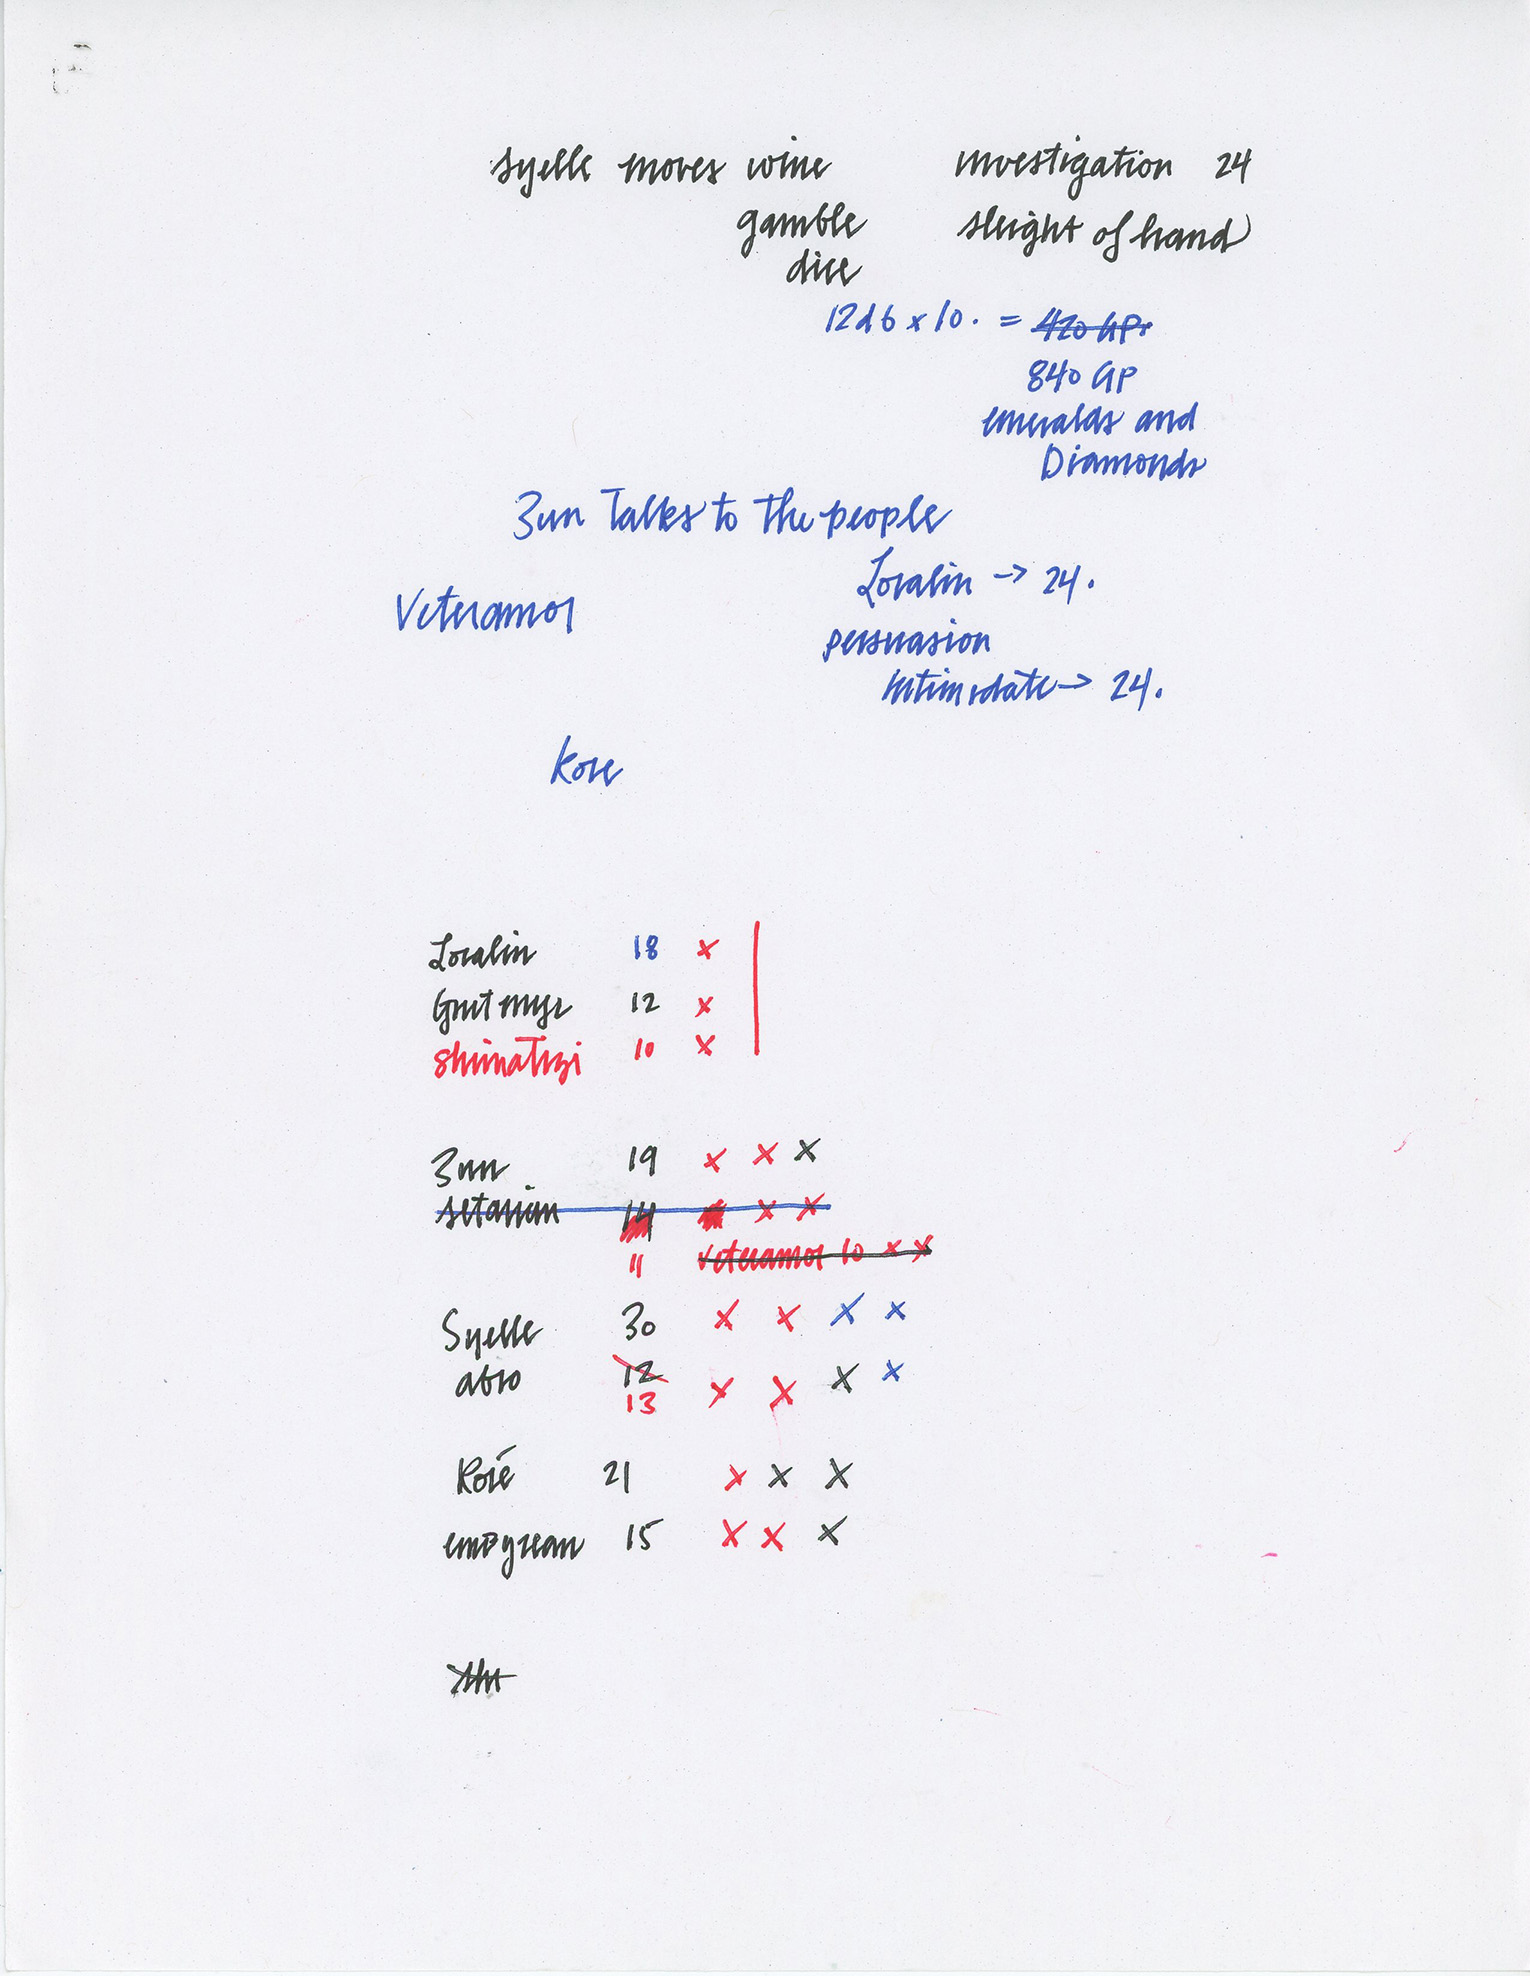 syelle moves wine investigation 24
gamble sleight of hand
dice
12d6 x 10. = 420 GP.
840 GP
emeralds and
Diamonds
Zun Talks to the people
Loralin -> 24.
Veteramor
persuasion
intimidate -> 24.
Kore
Loralin 18 x
12 x
10 x
Zun 19 x x x
setarian 14 x x
11 Veteramor 10 x x
Syelle 30 x x x x
atro 12 x x x x
13
Roré 21 x x x
empyrean 15 x x x